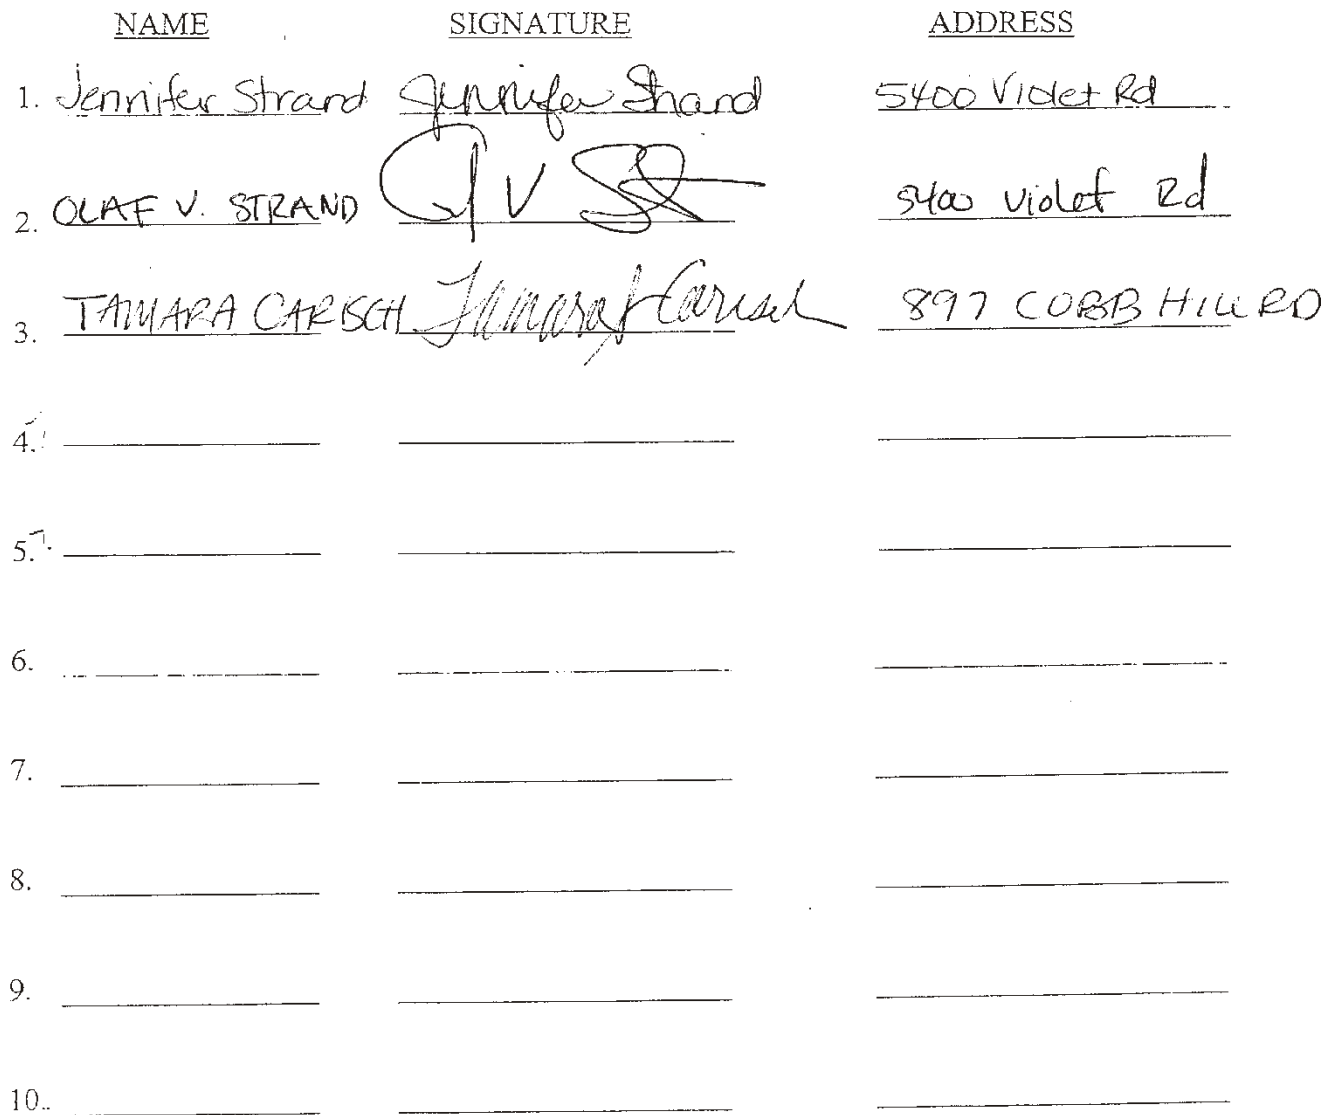 NAME SIGNATURE ADDRESS
1. Jennifer Strand Jennifer Strand 5400 Violet Rd
2. OLAF V. STRAND 5400 Violet Rd
3. TAMARA CARISCH Tamara J Carisch 897 COBB HILL RD
4.
5.
6.
7.
8.
9.
10.